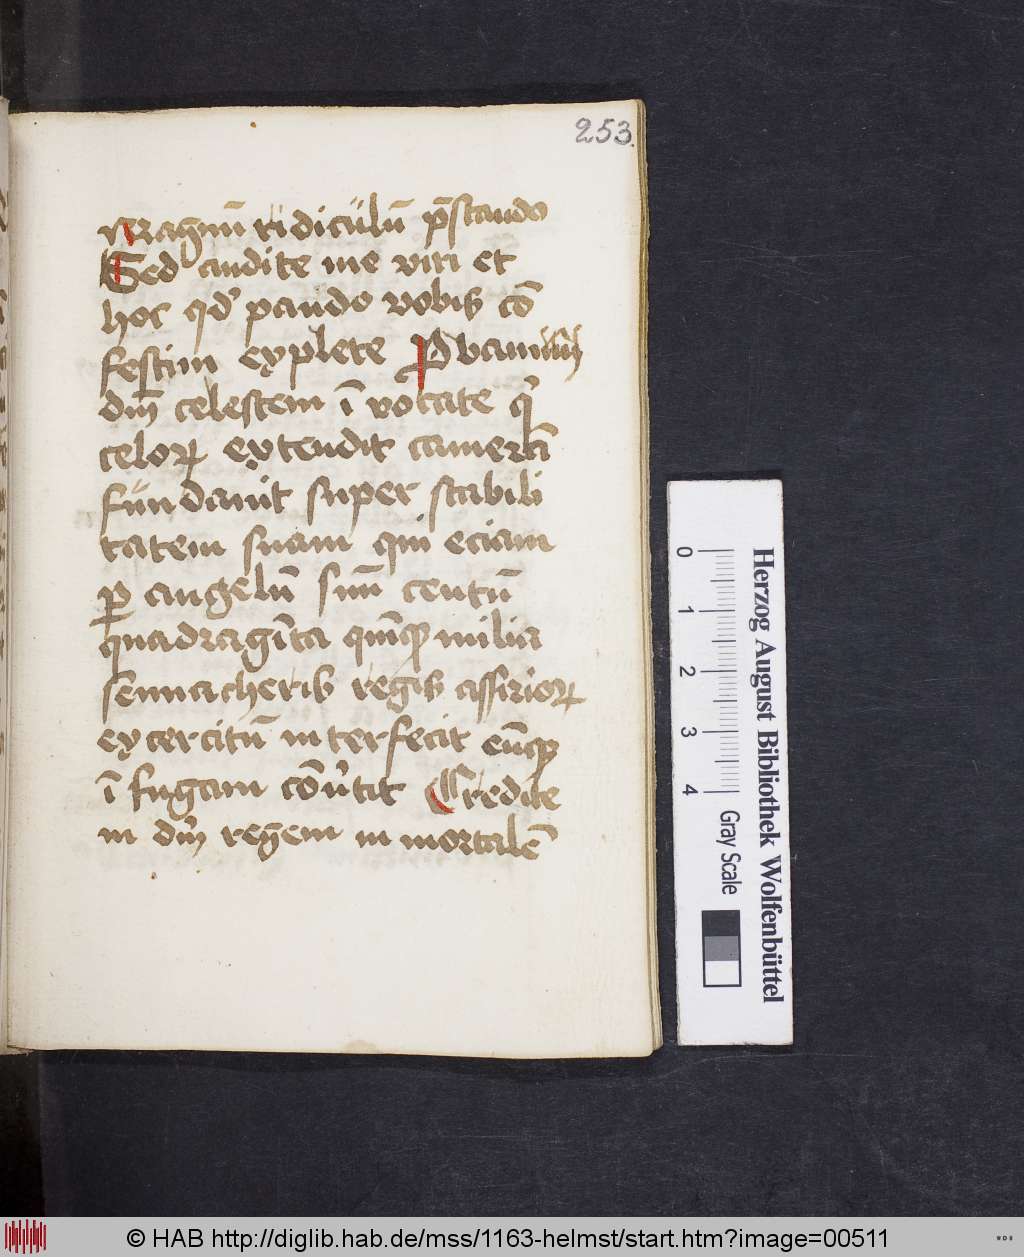 253
Magnū ridiculū p̄stando
Sed audite me viri et
hoc qd' pando vobis cō
festim explete
dm̄ celestem ī vocate q̄
celoꝝ extendit camerā
fundauit super stabili
tatem suam qui eciam
ꝑ angelū suū centū
quadragīta milia
sennacherib regis assirioꝝ
excercitū interfecit
ī fugam cōu'tit Credite
in dm̄ regem in mortalē
0
1
2
3
4
Gray Scale
Herzog August Bibliothek Wolfenbüttel
© HAB http://diglib.hab.de/mss/1163-helmst/start.htm?image=00511